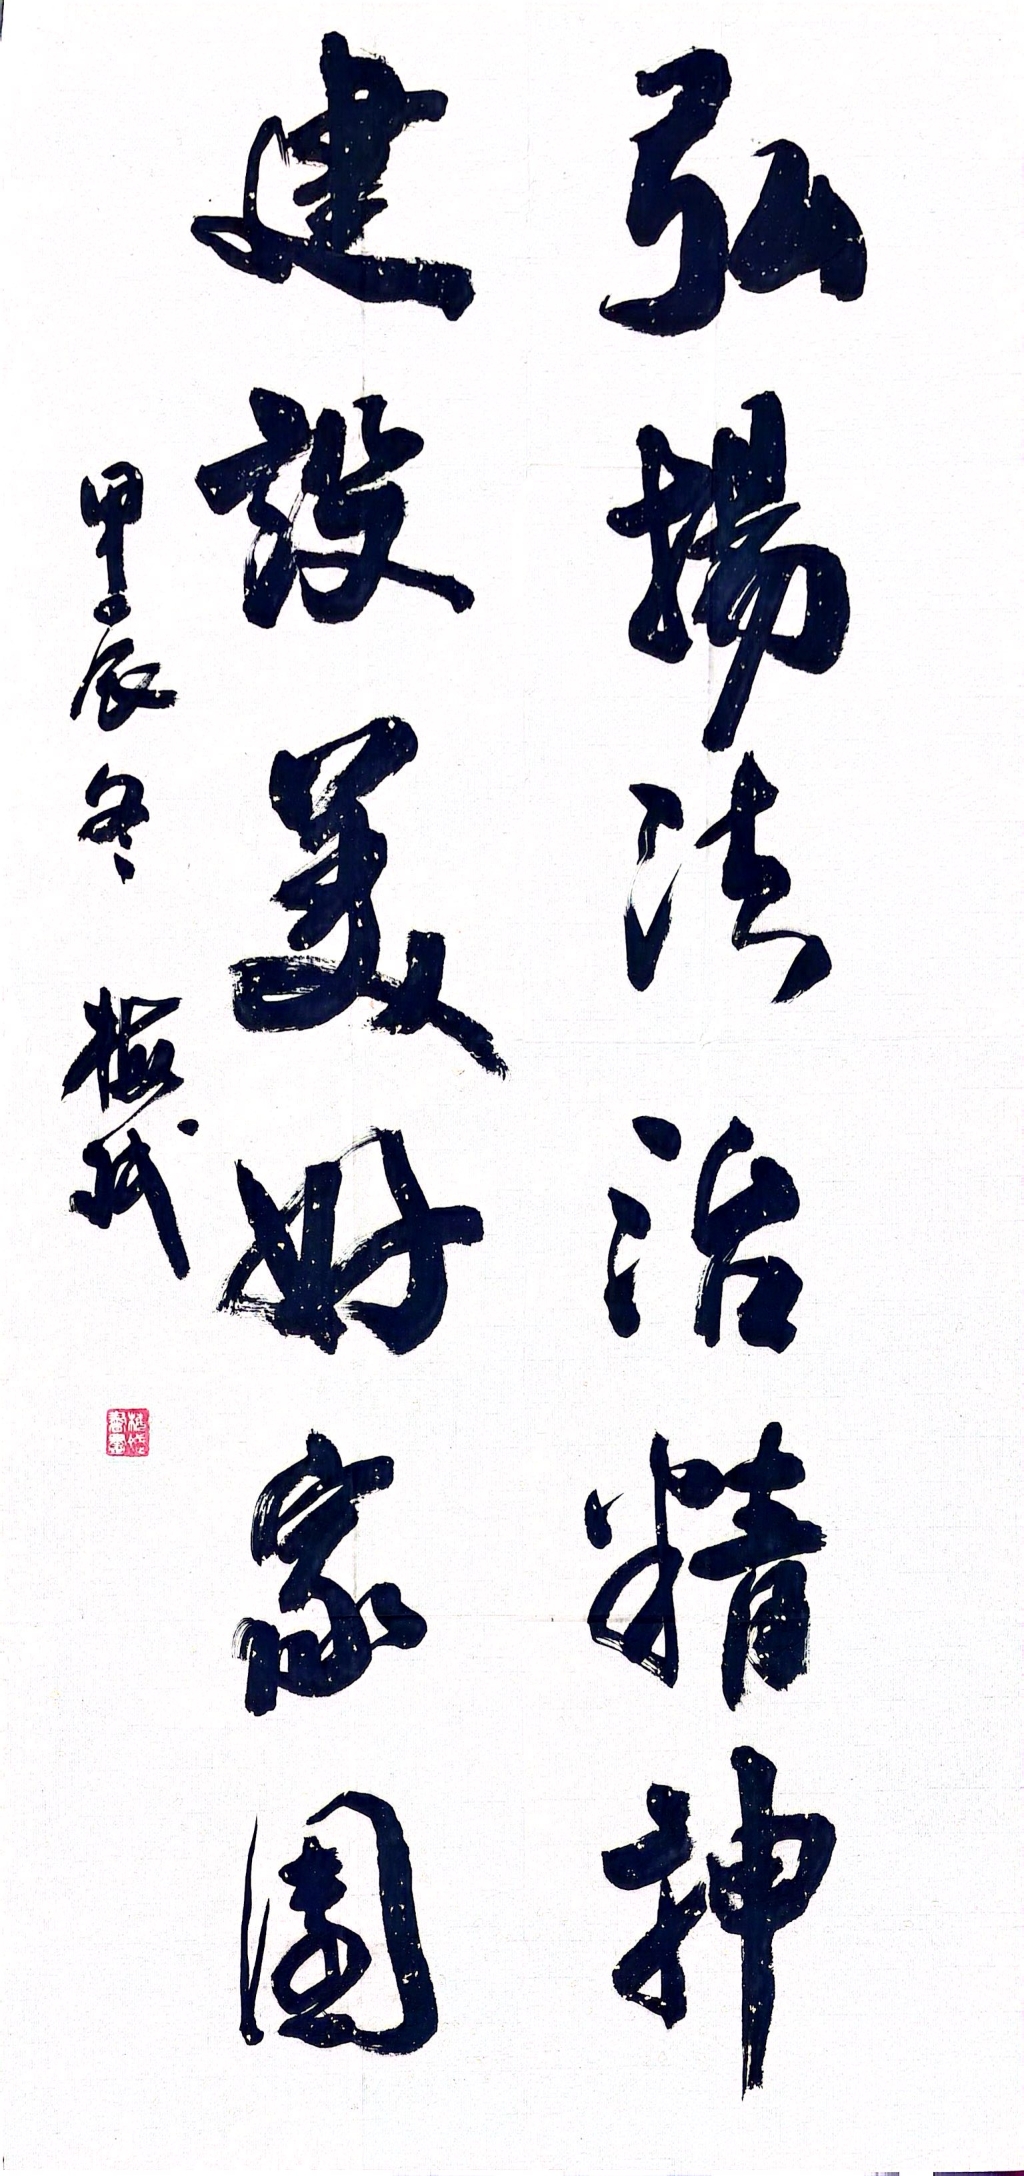 弘揚法治精神
建設美好家園
甲辰冬